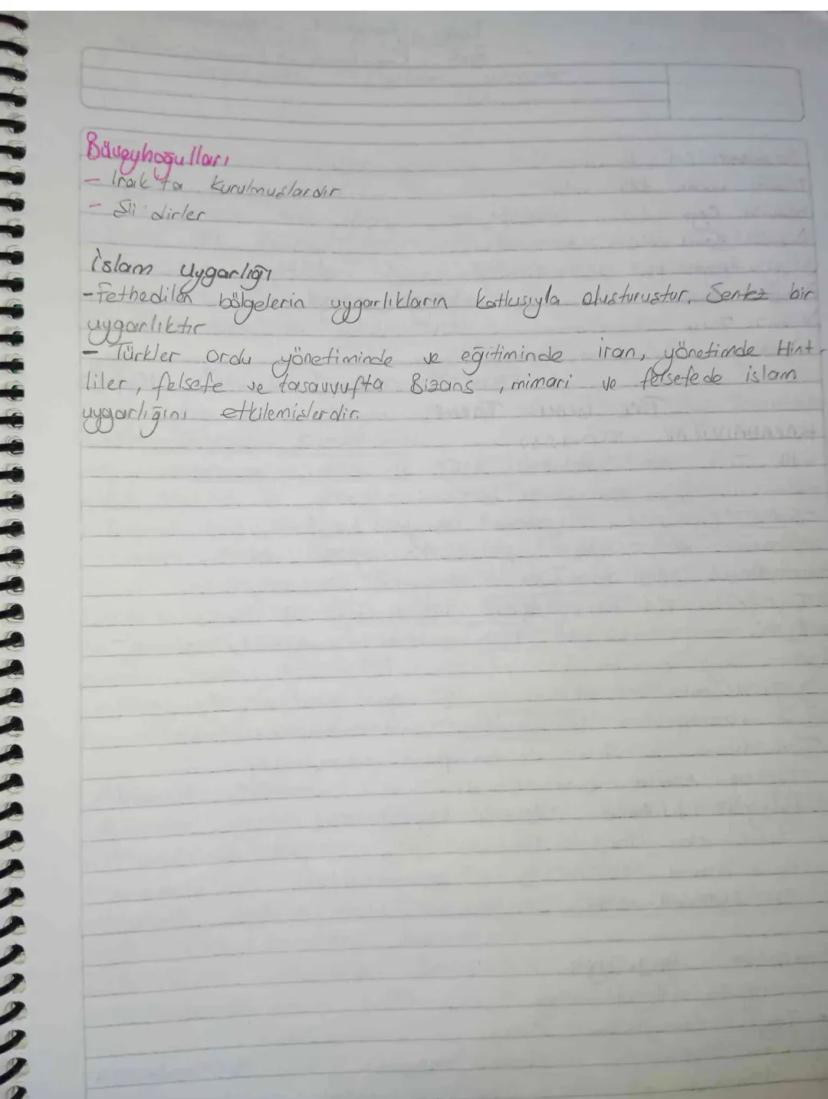 Büveyhoğulları
- Irak'ta kurulmuşlardır
- Şii'dirler
İslam Uygarlığı
- Fethedilen bölgelerin uygarlıkların katkısıyla oluşturuştur. Sentez bir
uygarlıktır
- Türkler ordu yönetiminde ve eğitiminde iran, yönetimde Hint-
liler, felsefe ve tasavvufta Bizans, mimari ve felsefede islam
uygarlığını etkilemişlerdir.